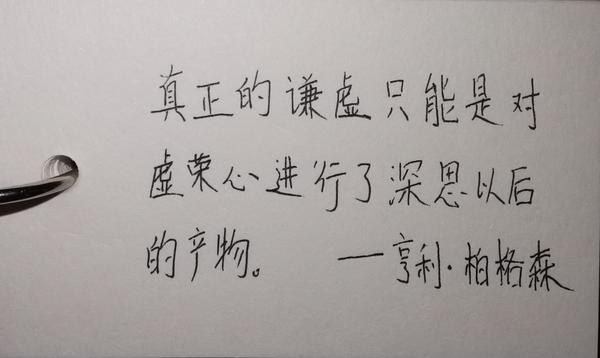 真正的谦虚只能是对
虚荣心进行了深思以后
的产物。 —亨利·柏格森